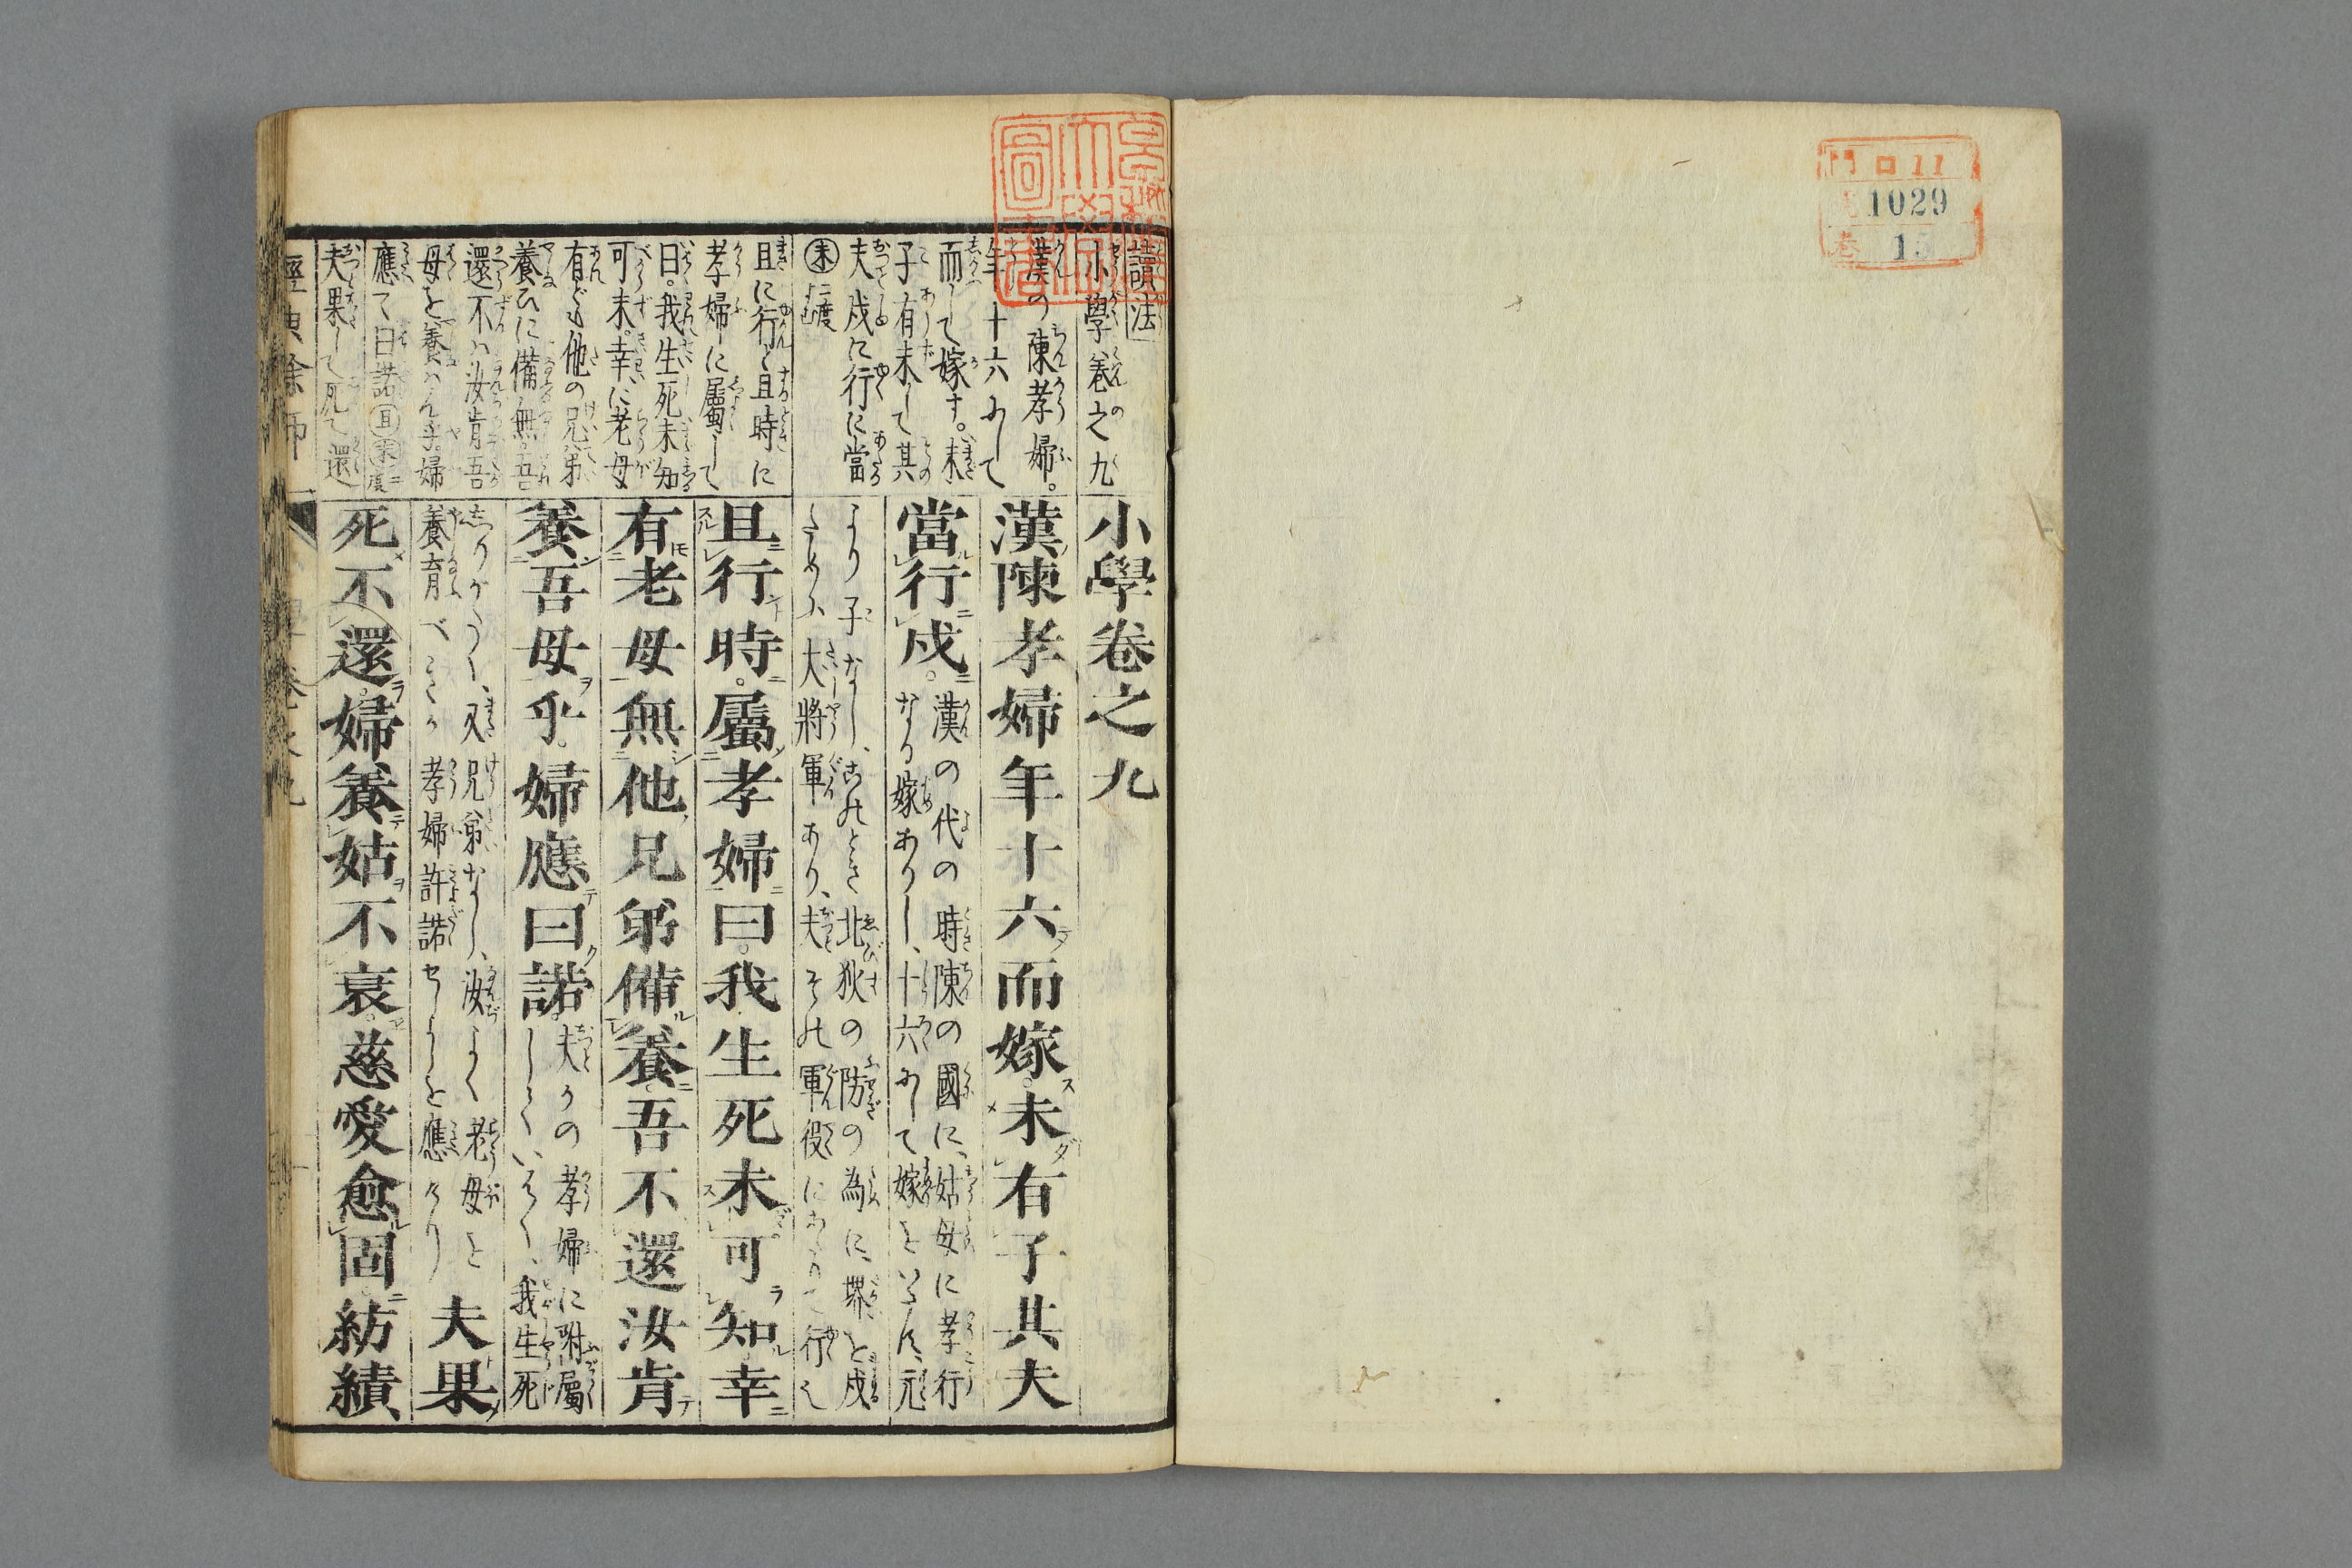 門 ロ 11
1029
巻 15
讀法
小學卷之九
漢の陳孝婦。
年十六にして
而して嫁す。未
子有未して其
夫戍に行に當
未二度よむ
且に行と且時に
孝婦に屬して
曰。我生死未知
可未。幸に老母
有ども他の兄弟
養ひに備無。吾
還不ハ汝肯吾
母を養ハん乎。婦
應て曰諾
夫果して死て還
小學卷之九
漢陳孝婦年十六而嫁。未有子其夫
當行戍。
漢の代の時陳の國に、姑母に孝行
なる嫁ありし、十六にして嫁をいたし、元
より子なし、このとき北狄の防の為に、堺を戍
ために大將軍あり、夫その軍役にあたりて行し
且行時。屬孝婦曰。我生死未可知幸
有老母無他兄弟備養。吾不還汝肯
養吾母乎。婦應曰諾。
夫かの孝婦に附屬
していはく、我生死
しりがたく、又兄弟なし、汝よく老母を
養育べきか孝婦許諾せしと應けり
夫果
死不還。婦養姑不衰。慈愛愈固。紡績
經典餘師